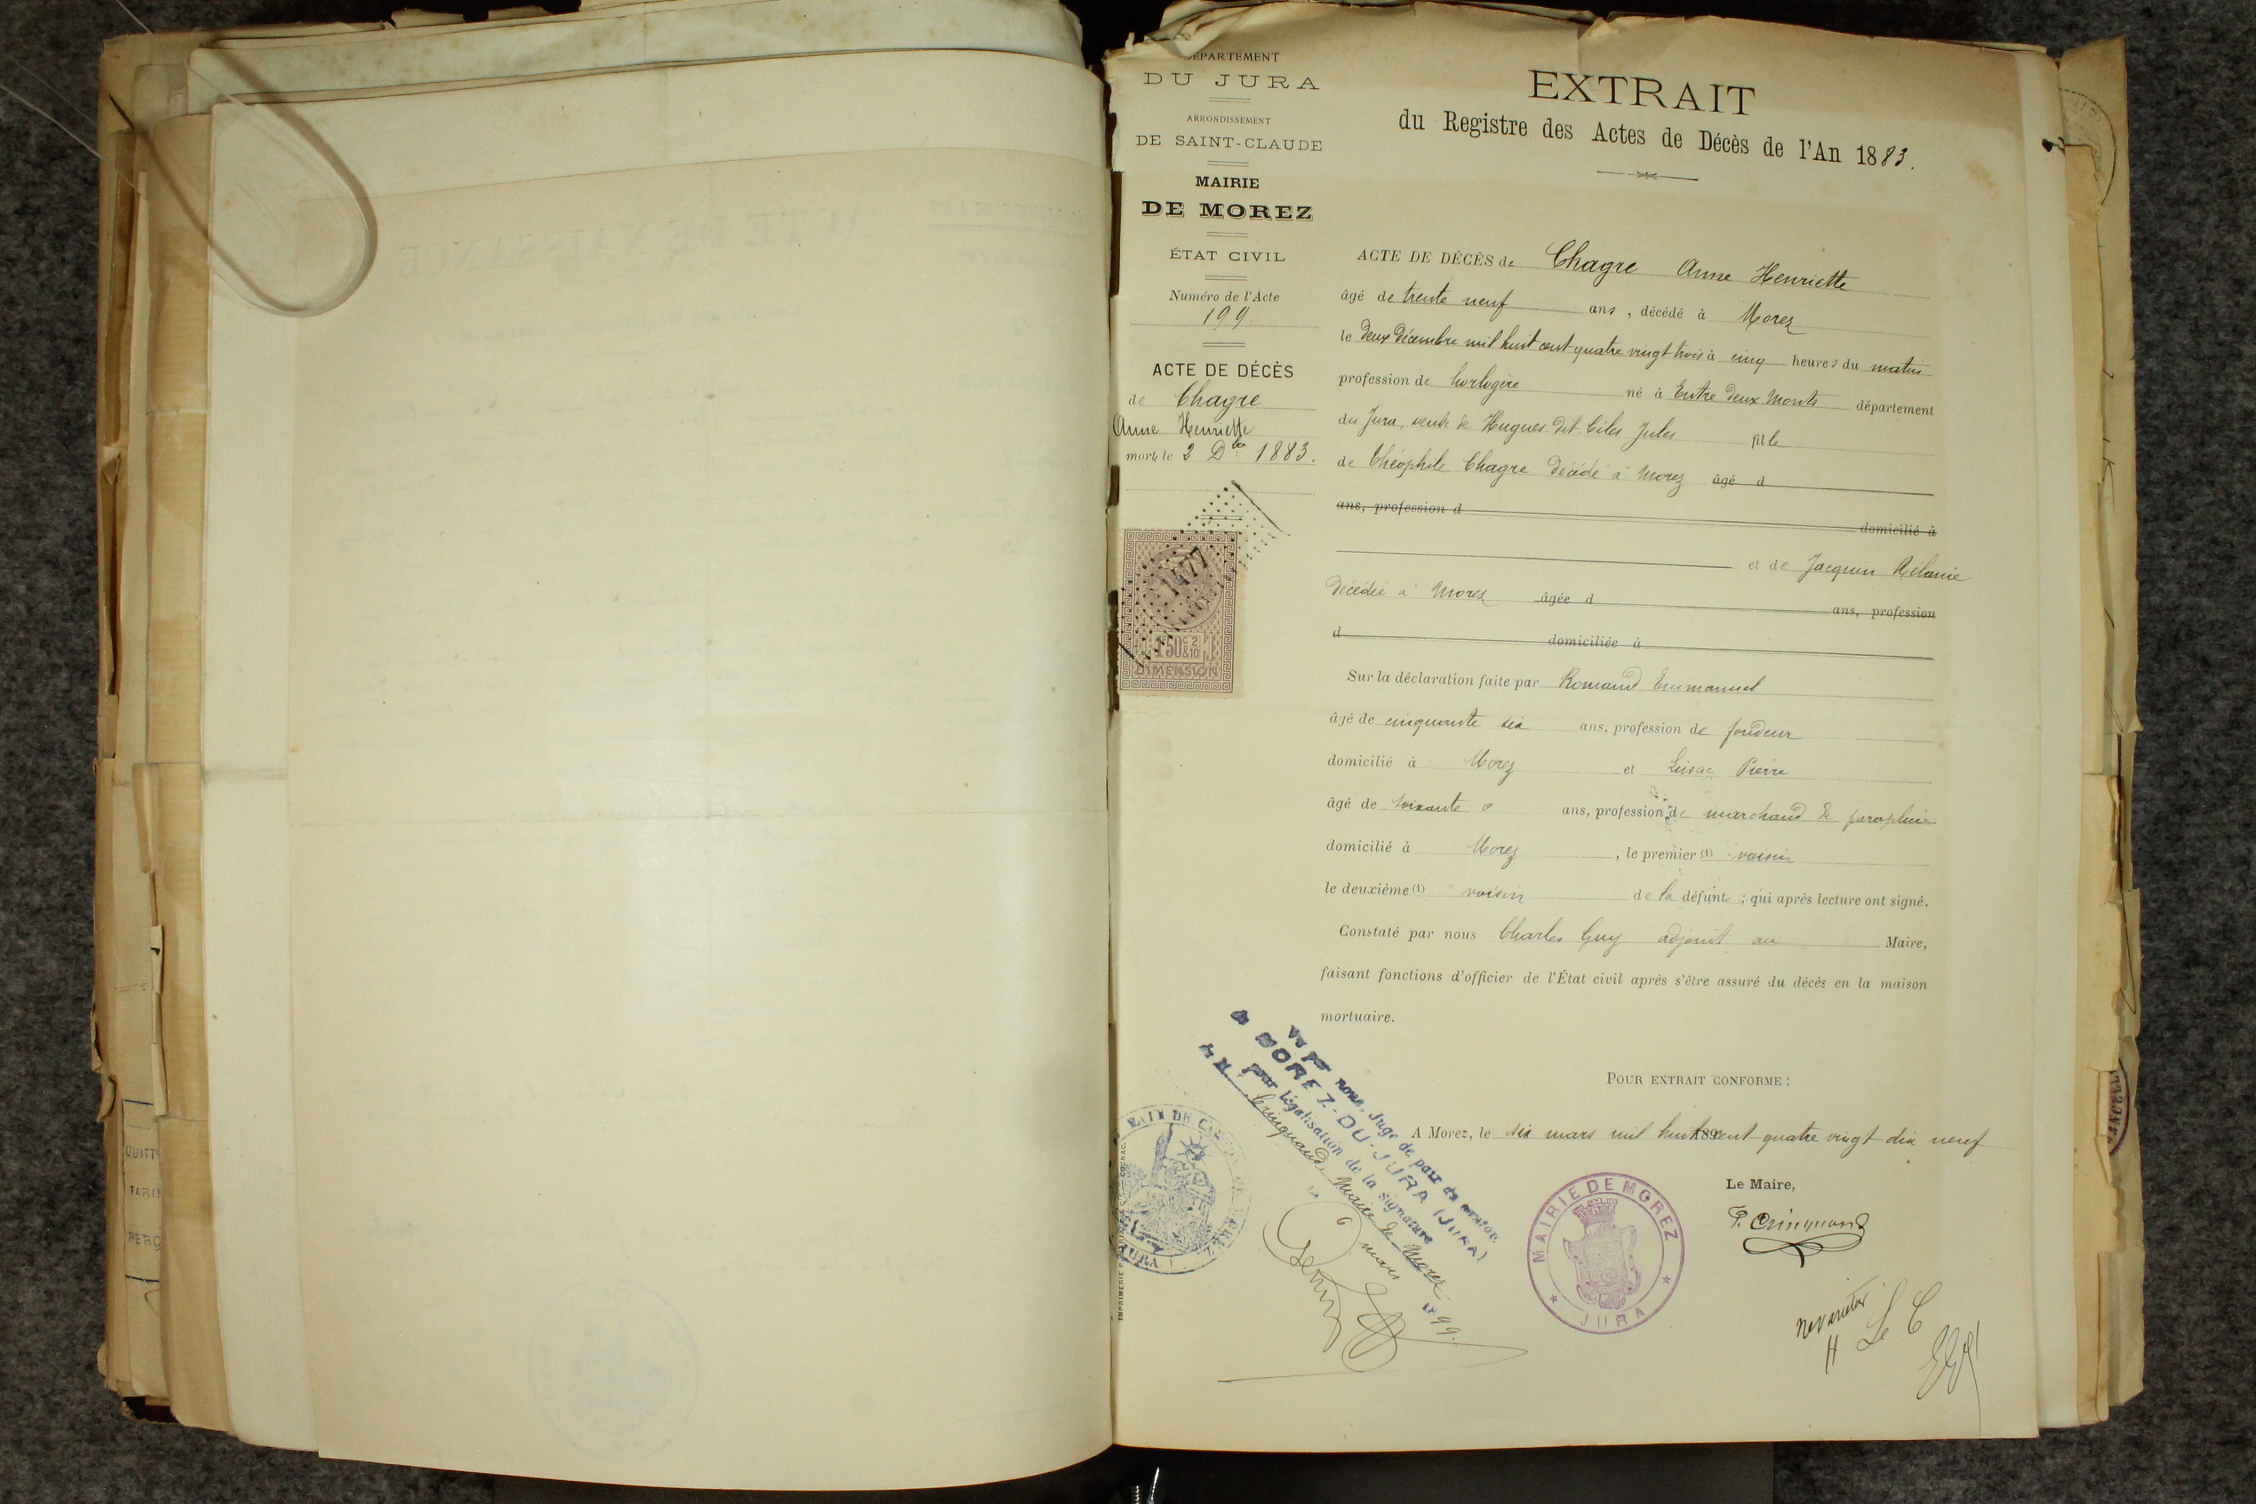 DÉPARTEMENT
DU JURA
ARRONDISSEMENT
DE SAINT-CLAUDE
MAIRIE
DE MOREZ
ÉTAT CIVIL
Numéro de l'Acte
199
ACTE DE DÉCÈS
de Chagre
Anne Henriette
morte le 2 Dbre 1883.
1477
1F50c 2&10
DIMENSION
EXTRAIT
du Registre des Actes de Décès de l'An 1883.
ACTE DE DÉCÈS de Chagre Anne Henriette
âgé de trente neuf ans, décédé à Morez
le deux décembre mil huit cent quatre vingt trois à cinq heures du matin
profession de horlogère né à Entre deux Monts département
du Jura, veuve de Hugues-dit-Ciles Jules fille
de Théophile Chagre décédé à Morez âgé d
ans, profession d domicilié à
et de Jacquin Mélanie
décédée à Morez âgée d ans, profession
d domiciliée à
Sur la déclaration faite par Romand Emmanuel
âgé de cinquante six ans, profession de fondeur
domicilié à Morez et Pierre
âgé de soixante ans, profession de marchand de parapluie
domicilié à Morez, le premier (1) voisin
le deuxième (1) voisin de la défunte; qui après lecture ont signé.
Constaté par nous Charles Guy adjoint au Maire,
faisant fonctions d'officier de l'État civil après s'être assuré du décès en la maison
mortuaire.
POUR EXTRAIT CONFORME:
A Morez, le six mars mil huit cent quatre vingt dix neuf
Le Maire,
P. Cringuand
MAIRIE DE MOREZ
JURA
Vu par nous, Juge de paix du canton
de MOREZ-DU-JURA (JURA)
pour légalisation de la signature
de M. Cringuand, Maire de Morez
le 6 mars 1899.
ne varietur